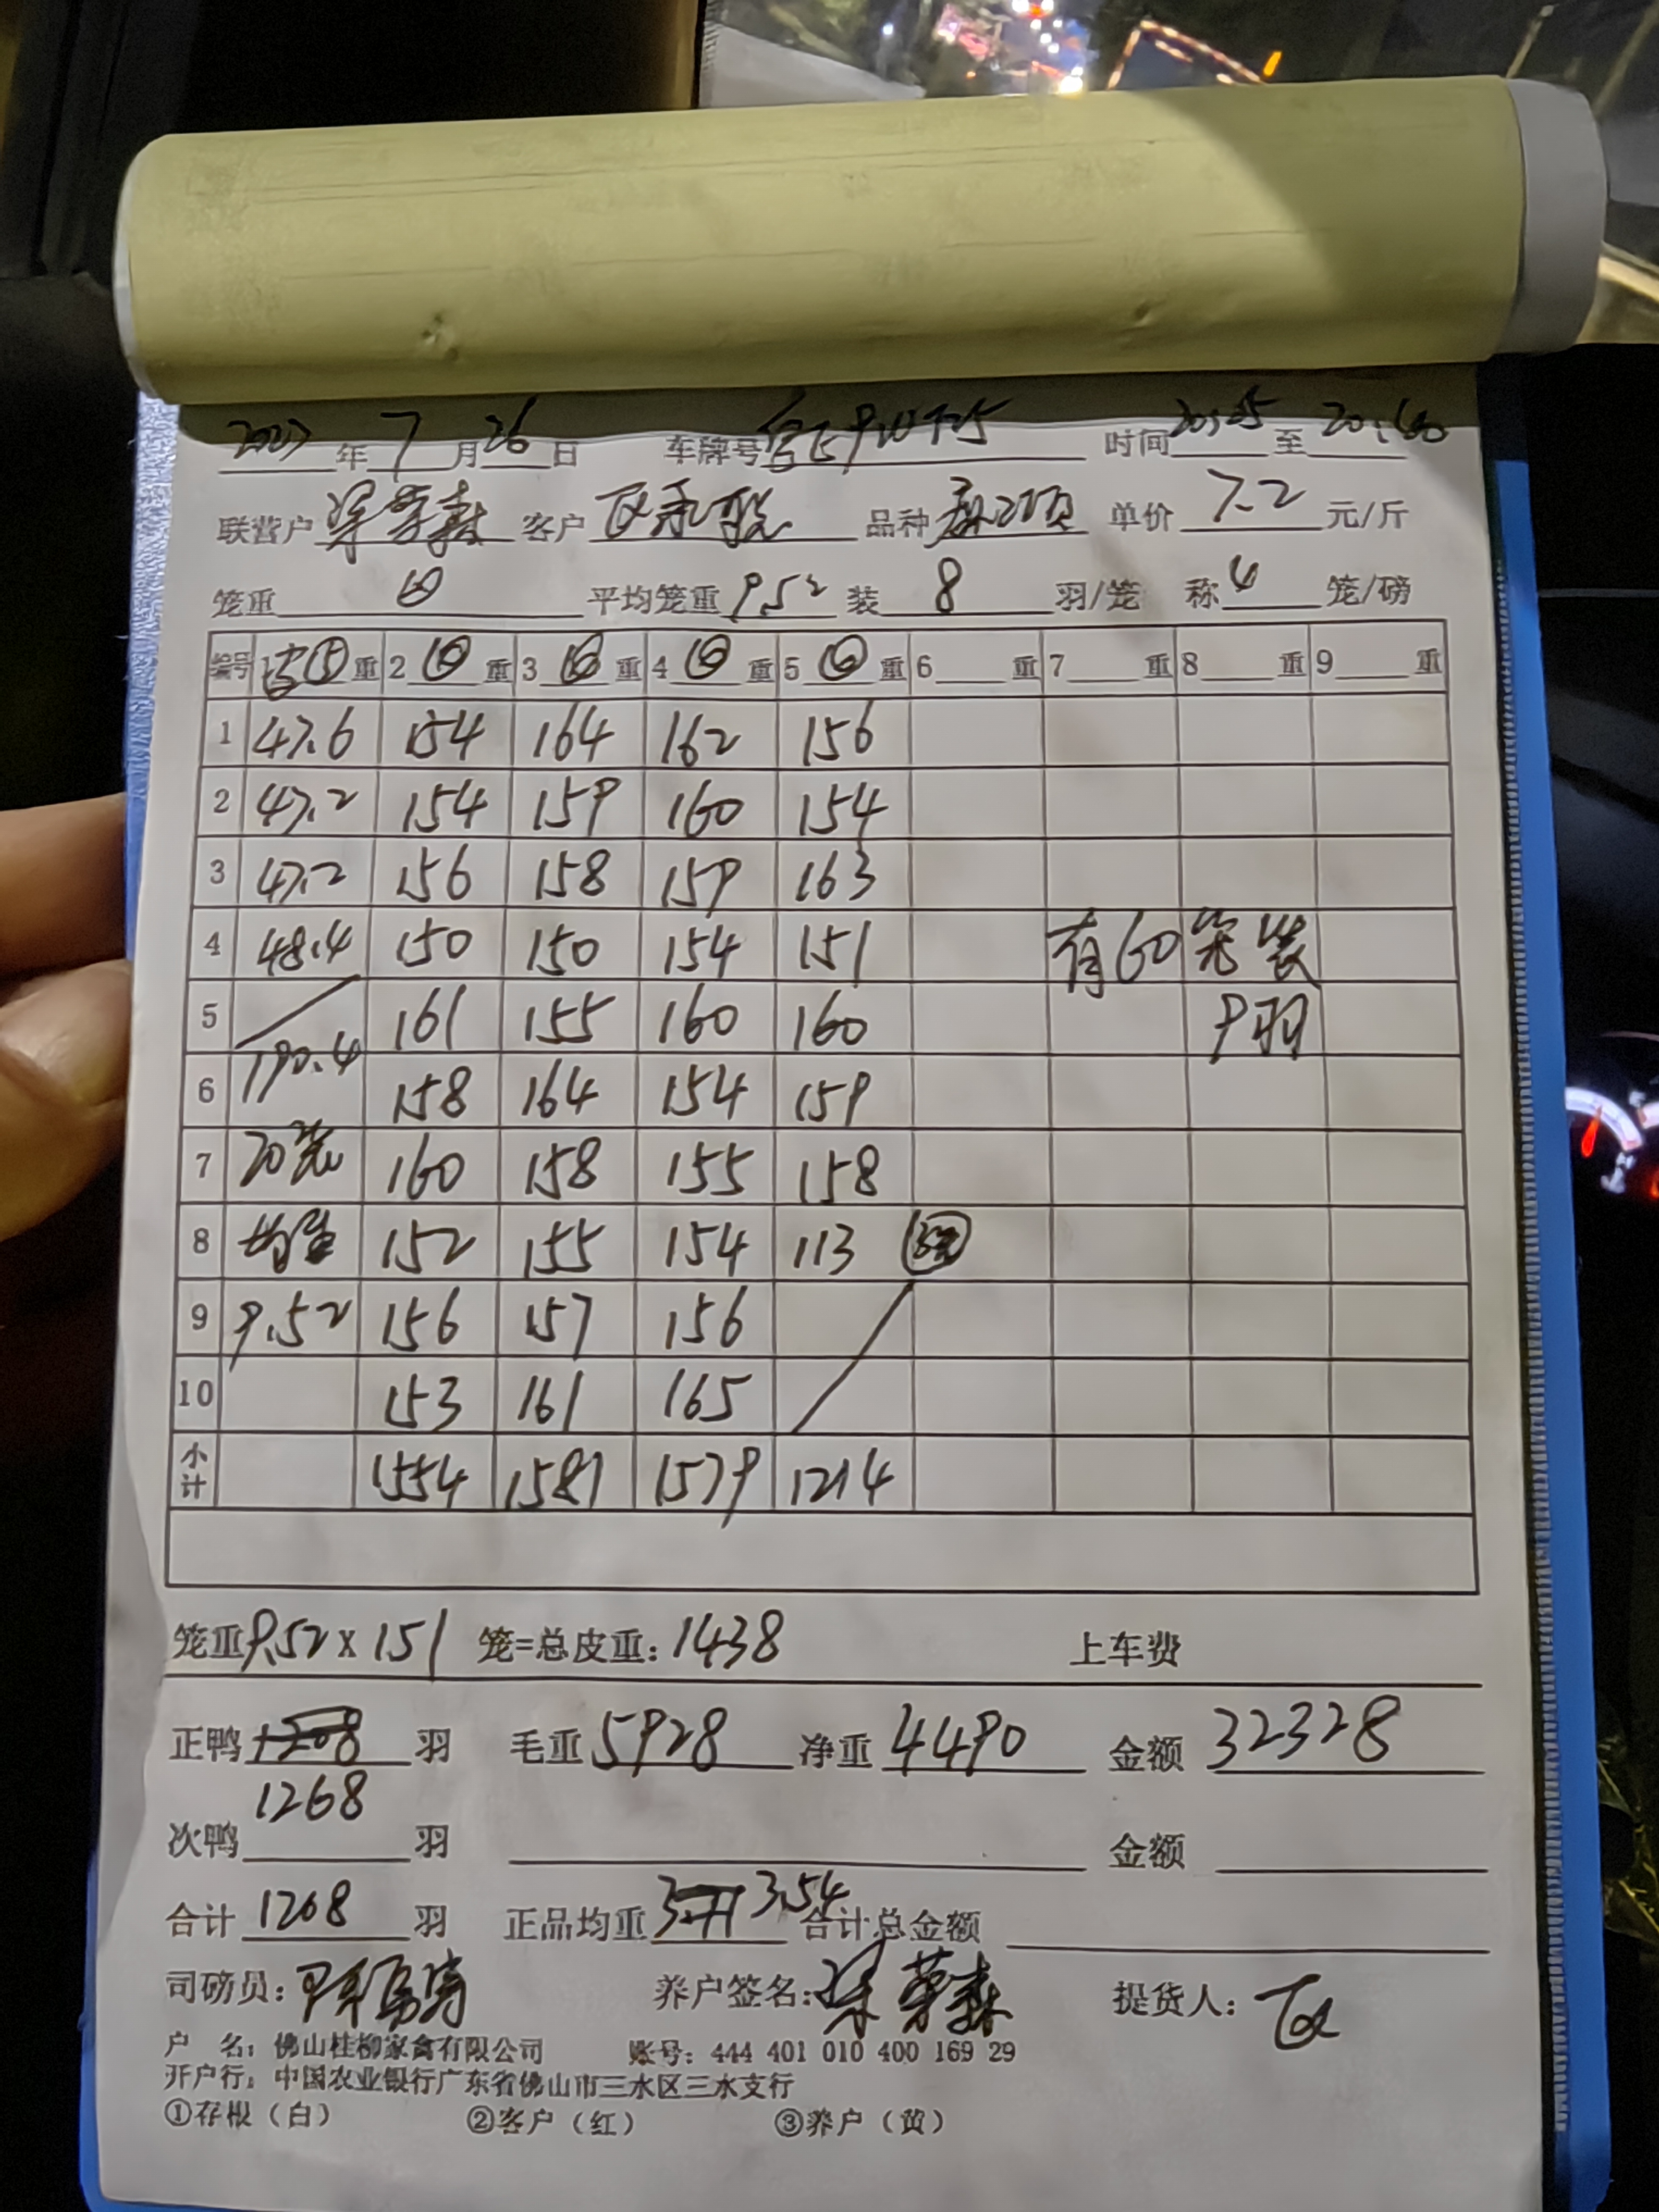 年 7 月 26 日 车牌号 时间 20:25 至 20:40
联营户 梁荣森 客户 品种 单价 7.2 元/斤
笼重 平均笼重 9.52 装 8 羽/笼 称 4 笼/磅
编号 重 2 重 3 重 4 重 5 重 6 重 7 重 8 重 9 重
1 47.6 154 164 162 156
2 47.2 154 159 160 154
3 47.2 156 158 159 163
4 48.4 150 150 154 151 有60笼装
5 161 155 160 160 9羽
6 190.4 158 164 154 159
7 20笼 160 158 155 158
8 均重 152 155 154 113 3笼
9 9.52 156 157 156
10 153 161 165
小计 1554 1581 1579 1214
笼重 9.52 x 151 笼=总皮重: 1438 上车费
正鸭 1208 羽 毛重 5928 净重 4490 金额 32328
1268
次鸭 羽 金额
合计 1268 羽 正品均重 3.54 合计总金额
司磅员: 养户签名: 梁荣森 提货人:
户 名: 佛山桂柳家禽有限公司 账号: 444 401 010 400 169 29
开户行: 中国农业银行广东省佛山市三水区三水支行
①存根(白) ②客户(红) ③养户(黄)